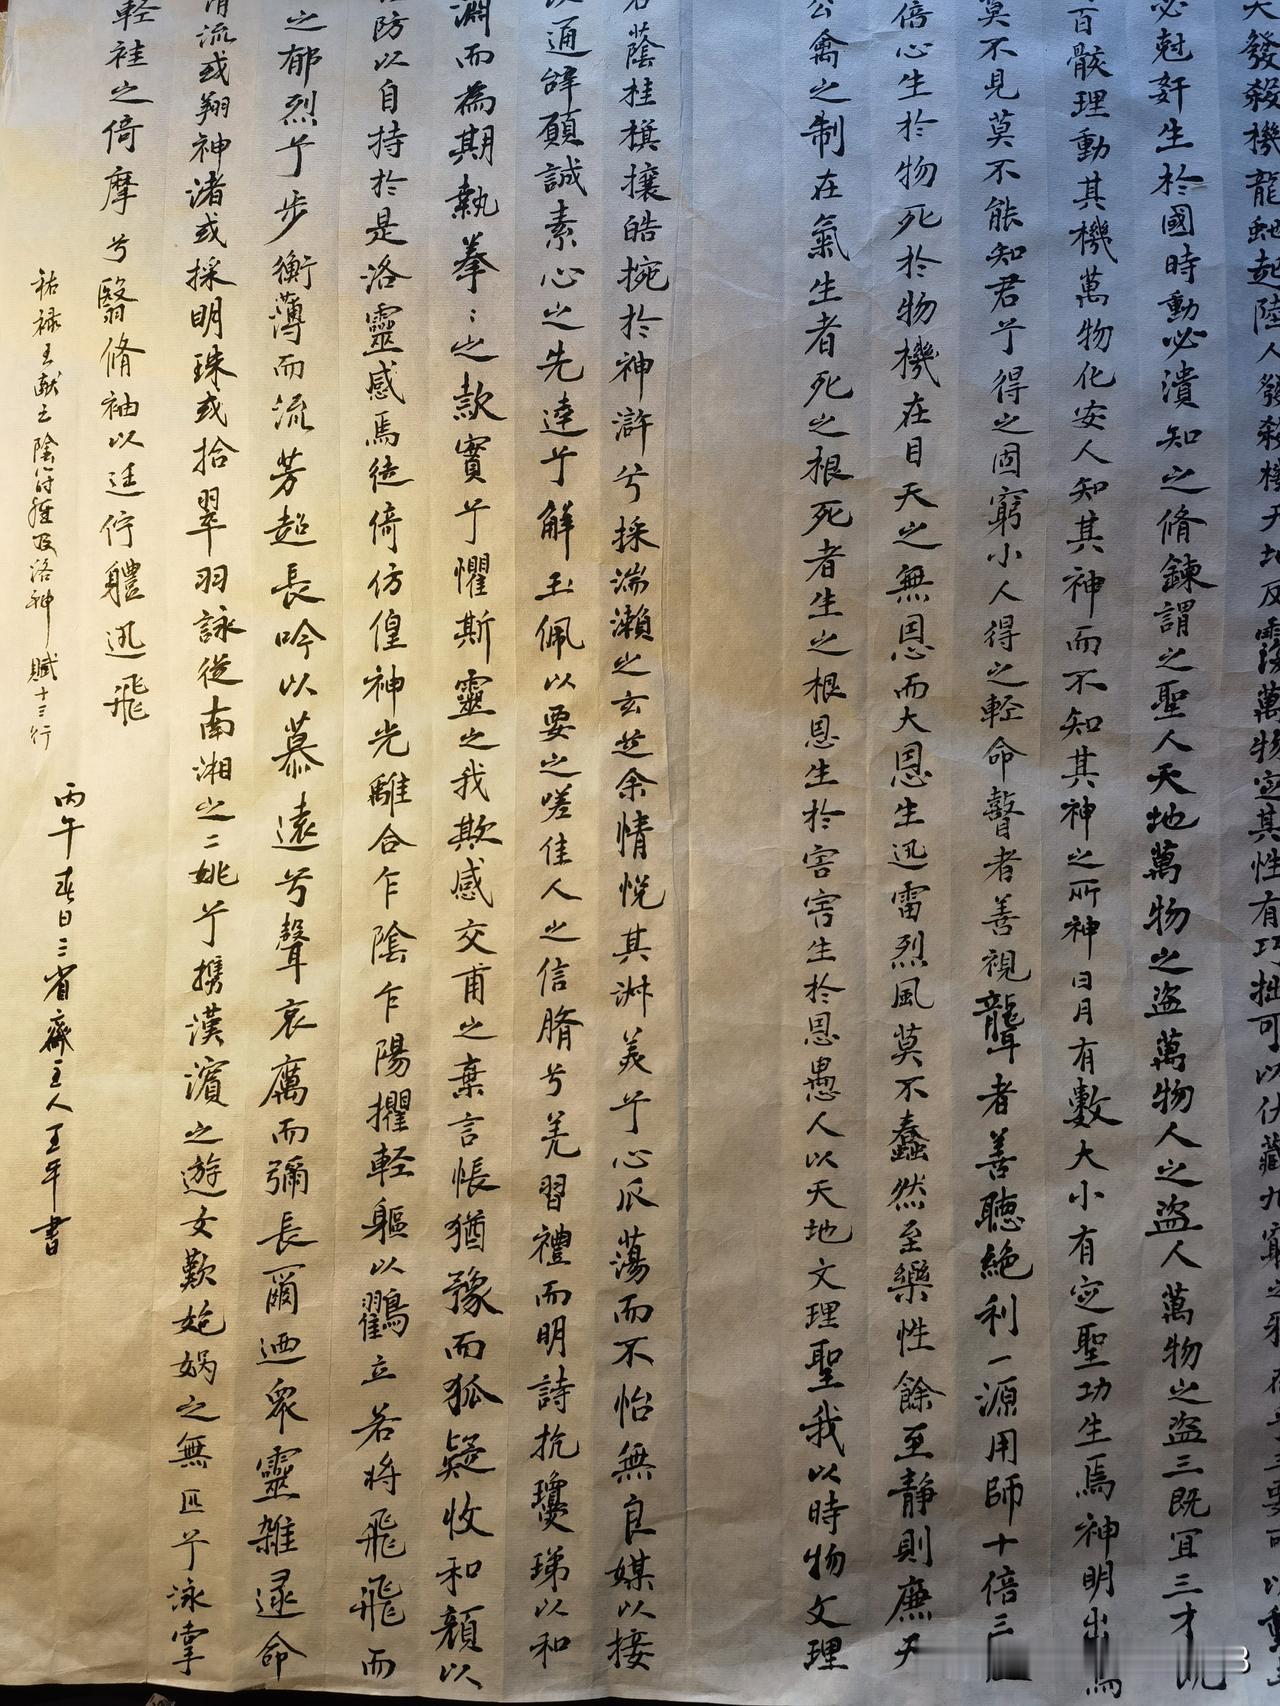 天發殺機龍虵起陸人發殺機天地反覆萬物定其性有巧拙可以伏藏九竅之邪在乎三要可以動
必尅奸生於國時動必潰知之脩鍊謂之聖人天地萬物之盜萬物人之盜人萬物之盜三既宜三才既
百骸理動其機萬物化安人知其神而不知其神之所神日月有數大小有定聖功生焉神明出焉
莫不見莫不能知君子得之固窮小人得之輕命瞽者善視聾者善聽絶利一源用師十倍三
倍心生於物死於物機在目天之無恩而大恩生迅雷烈風莫不蠢然至樂性餘至靜則廉天
公禽之制在氣生者死之根死者生之根恩生於害害生於恩愚人以天地文理聖我以時物文理
蔭桂旗攘皓捥於神滸兮採湍瀨之玄芝余情悅其淋美兮心瓜蕩而不怡無良媒以接
通辝願誠素心之先達兮解玉佩以要之嗟佳人之信脩兮羌習禮而明詩抗瓊珶以和
淵而為期執拳〻之款實兮懼斯靈之我欺感交甫之棄言悵猶豫而狐疑收和顏以
防以自持於是洛靈感焉徒倚仿偟神光離合乍陰乍陽擢軽軀以鸖立若將飛飛而
之郁烈兮步衡薄而流芳超長吟以慕遠兮聲哀厲而彌長爾迺衆靈雜遝命
清流或翔神渚或採明珠或拾翠羽詠從南湘之二姚兮携漢濱之遊女歎匏媧之無匹兮泳牽
軽袿之倚摩兮翳脩袖以迋佇軆迅飛
祐禄王献之陰符經及洛神賦十三行
丙午春日三省齋主人王平書